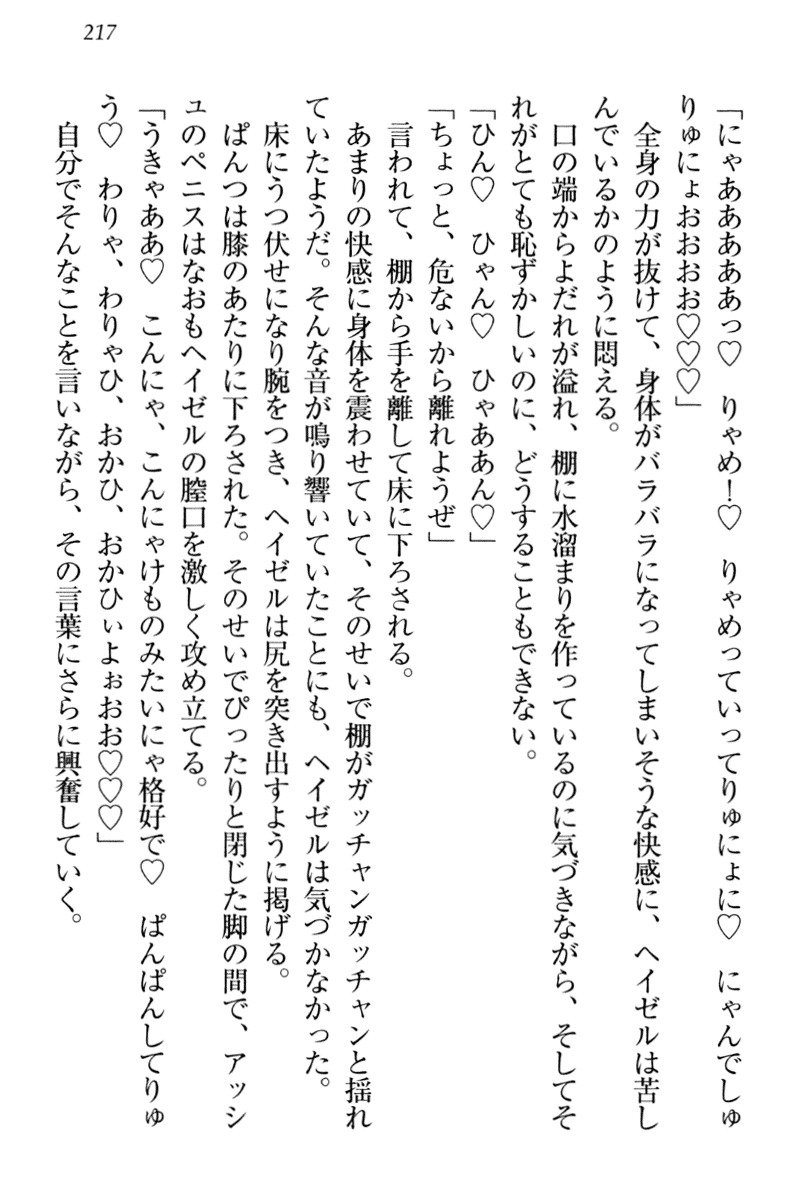 217
「にゃあああああっ♡　りゃめ！♡　りゃめっていってりゅにょに♡　にゃんでしゅ
りゅにょおおおお♡♡♡」
全身の力が抜けて、身体がバラバラになってしまいそうな快感に、ヘイゼルは苦し
んでいるかのように悶える。
口の端からよだれが溢れ、棚に水溜まりを作っているのに気づきながら、そしてそ
れがとても恥ずかしいのに、どうすることもできない。
「ひん♡　ひゃん♡　ひゃああん♡」
「ちょっと、危ないから離れようぜ」
言われて、棚から手を離して床に下ろされる。
あまりの快感に身体を震わせていて、そのせいで棚がガッチャンガッチャンと揺れ
ていたようだ。そんな音が鳴り響いていたことにも、ヘイゼルは気づかなかった。
床にうつ伏せになり腕をつき、ヘイゼルは尻を突き出すように掲げる。
ぱんつは膝のあたりに下ろされた。そのせいでぴったりと閉じた脚の間で、アッシ
ュのペニスはなおもヘイゼルの膣口を激しく攻め立てる。
「うきゃああ♡　こんにゃ、こんにゃけものみたいにゃ格好で♡　ぱんぱんしてりゅ
う♡　わりゃ、わりゃひ、おかひ、おかひぃよぉおお♡♡♡」
自分でそんなことを言いながら、その言葉にさらに興奮していく。